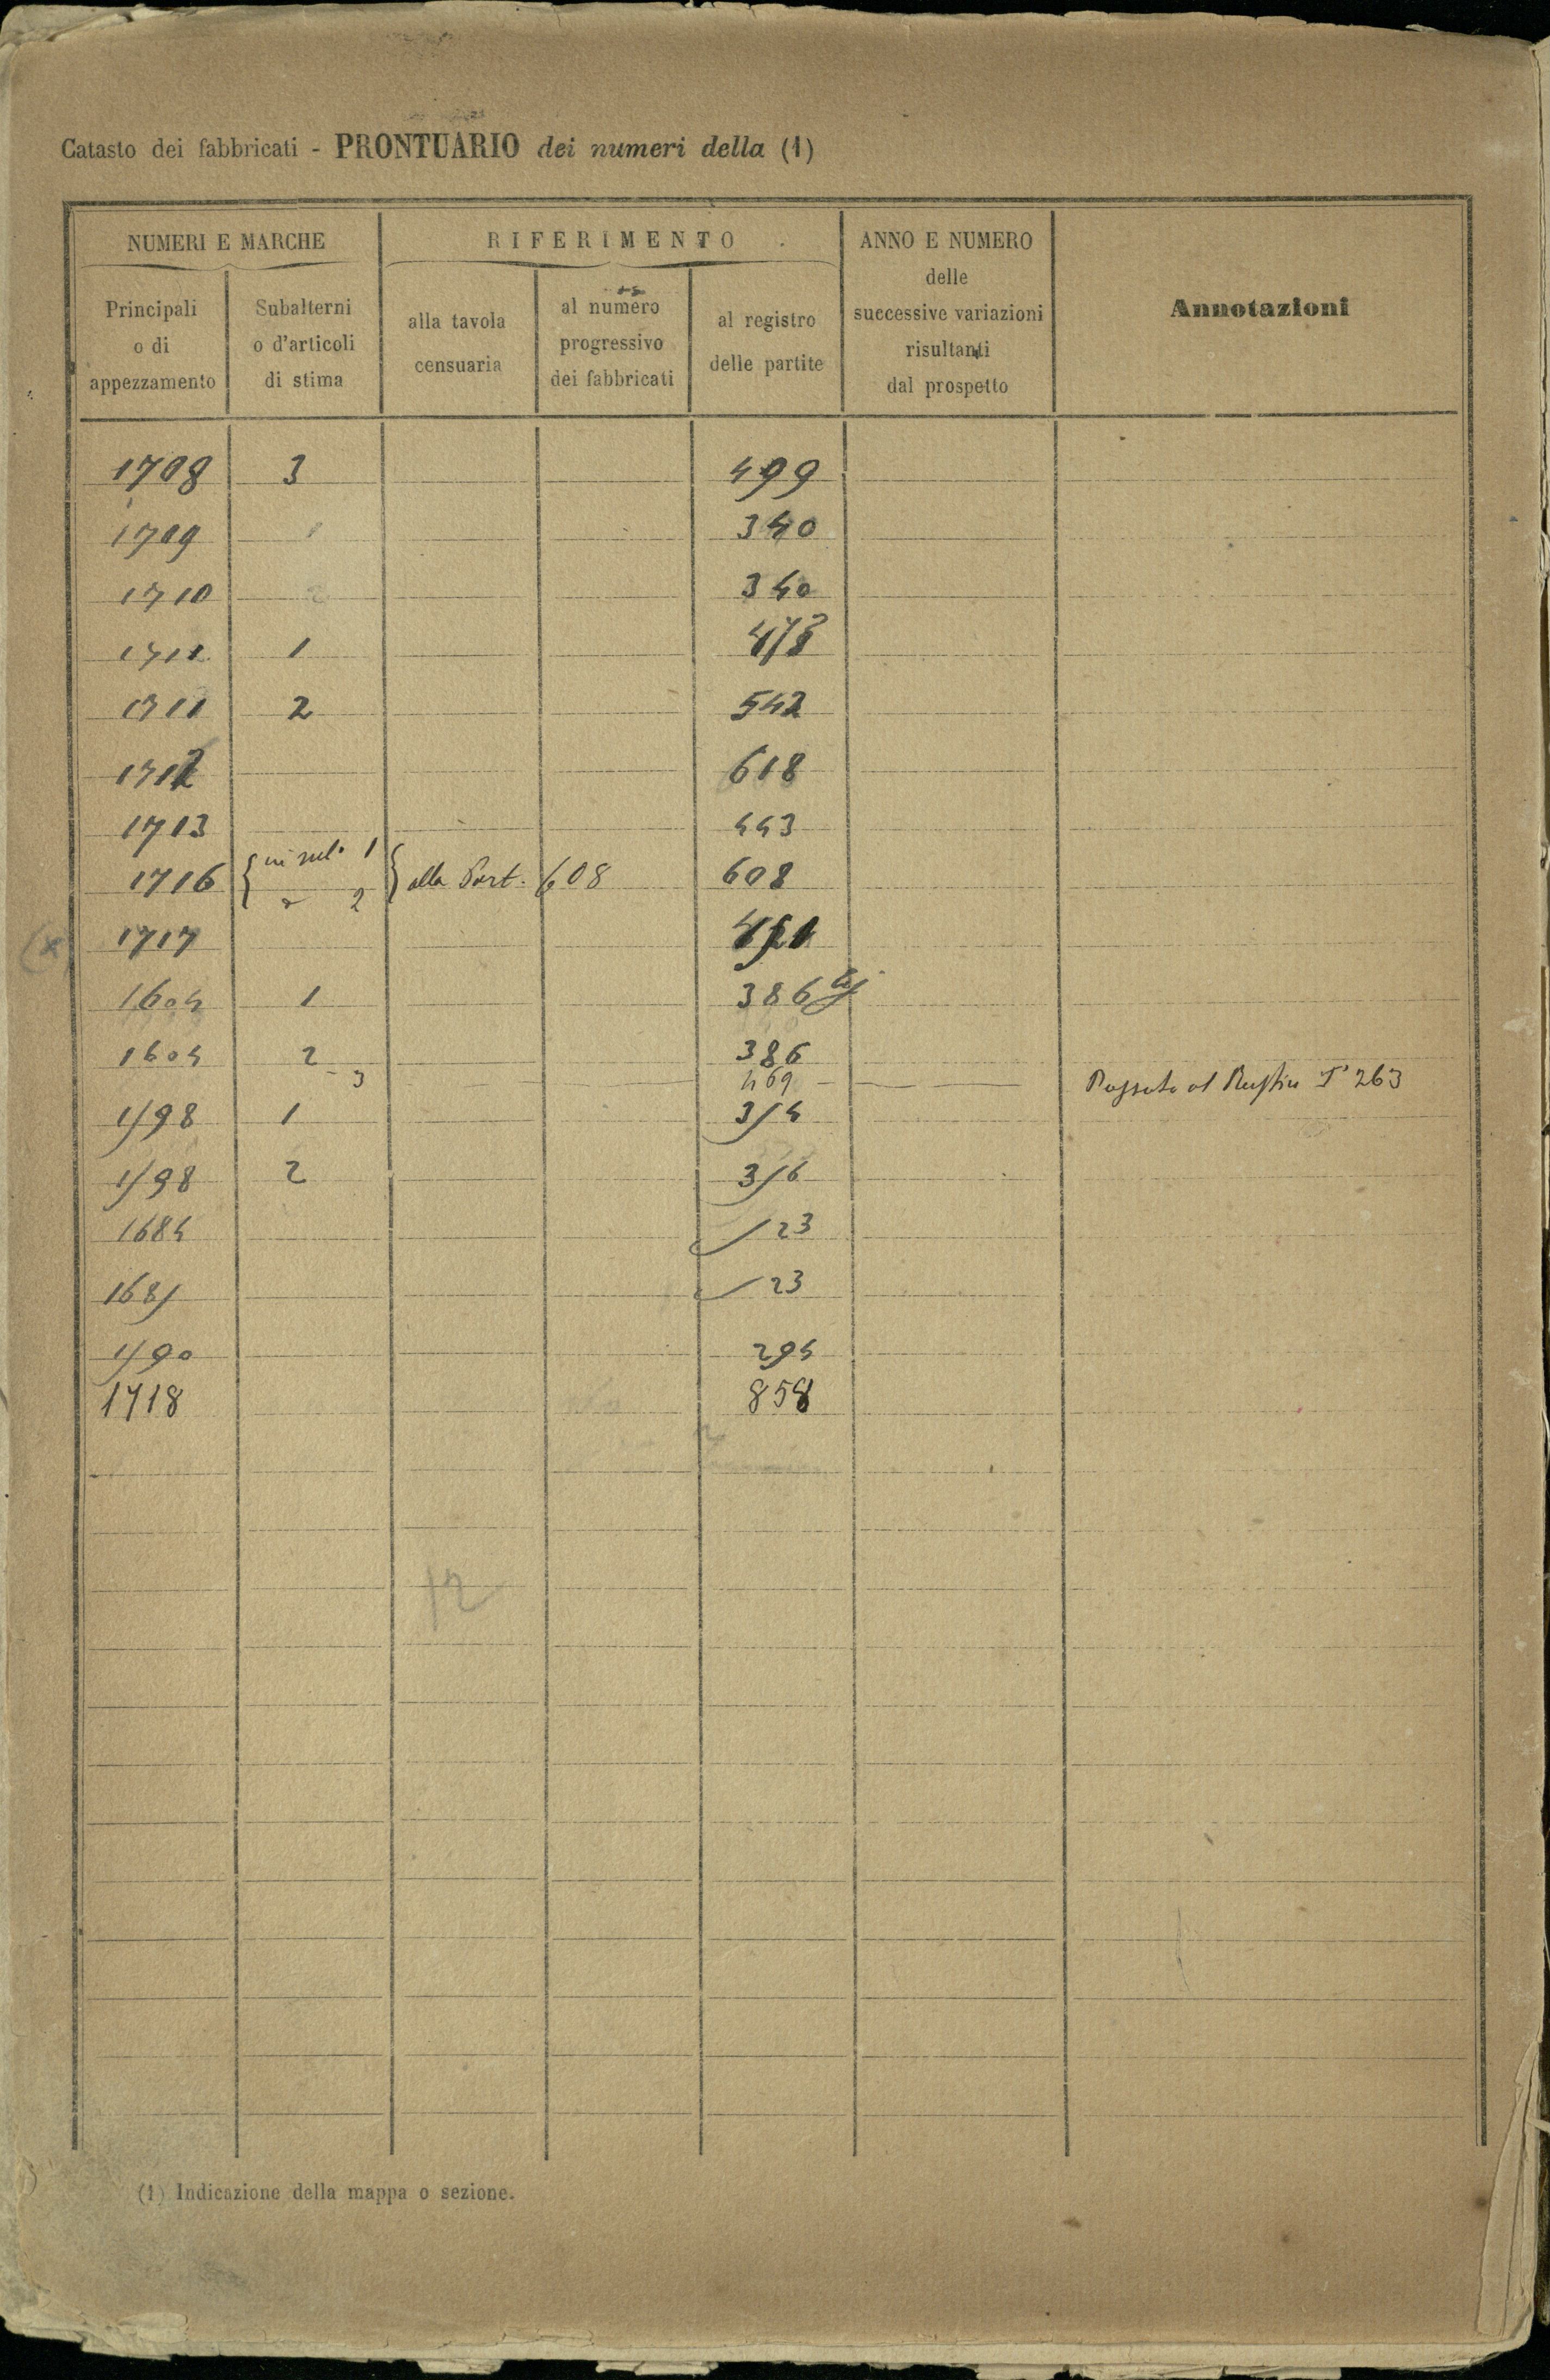 Catasto dei fabbricati - PRONTUARIO dei numeri della (1)
NUMERI E MARCHE
Principali
o di
appezzamento
Subalterni
o d'articoli
di stima
RIFERIMENTO
alla tavola
censuaria
al numero
progressivo
dei fabbricati
al registro
delle partite
ANNO E NUMERO
delle
successive variazioni
risultanti
dal prospetto
Annotazioni
1708 3 499
1709 1 340
1710 2 340
1711 1
1711 2 542
1712 618
1713 443
1716 1 2 alla Part. 608 608
(x) 1717
1604 1 386
1604 2 386
- 3 469 Passato al Rustico P. 263
1598 1 354
1598 2 356
1684 523
1685 523
1590 294
1718 858
12
(1) Indicazione della mappa o sezione.